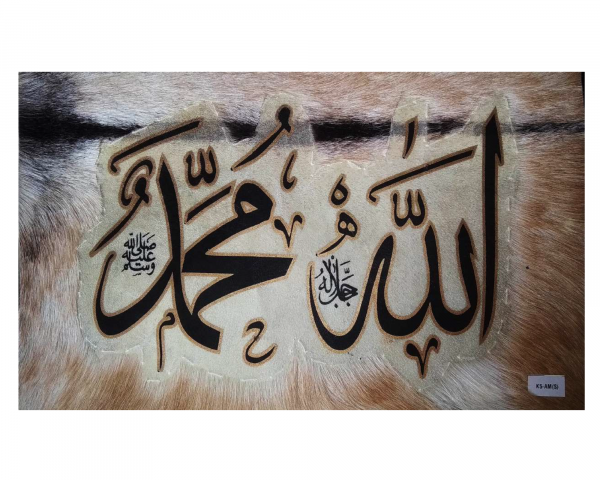 الله جل جلاله
محمد صلى الله عليه وسلم
KS-AM(S)